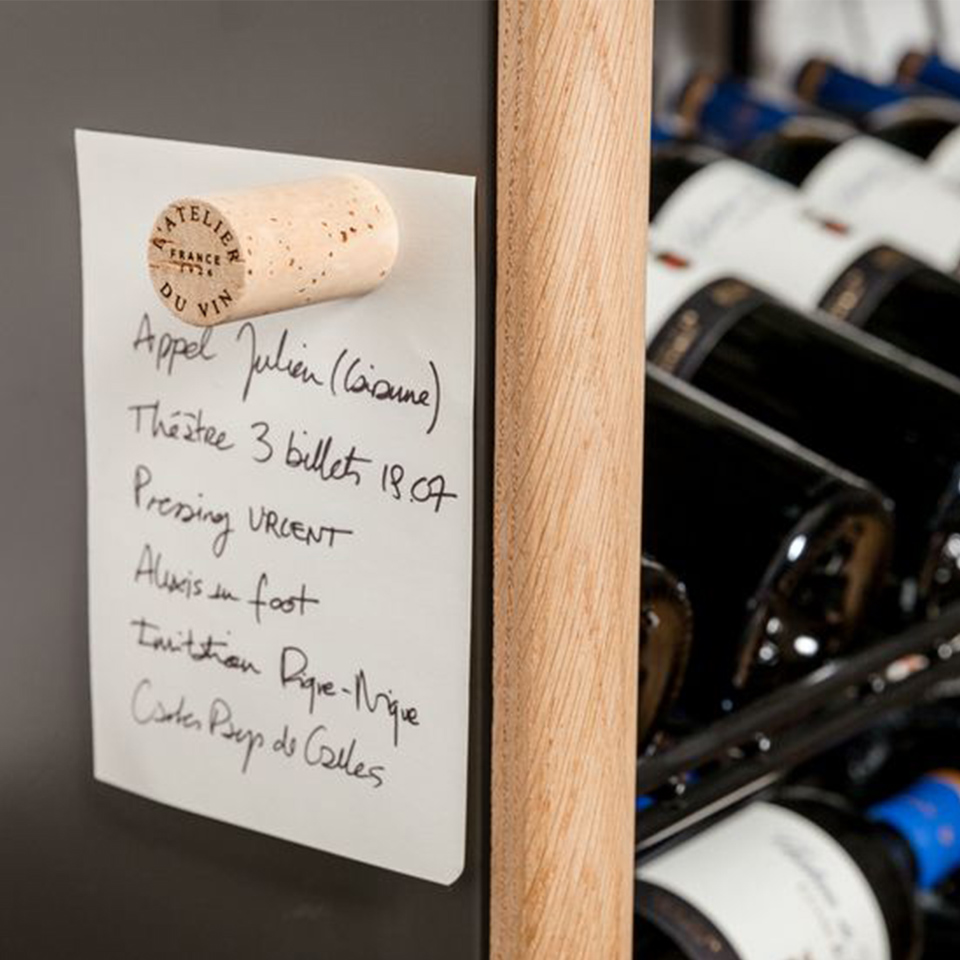 L'ATELIER
FRANCE
1926
DU VIN
Appel Julien
Théâtre 3 billets
Pressing URGENT
Alexis foot
Invitation Pique-Nique
Cartes Pays de Galles